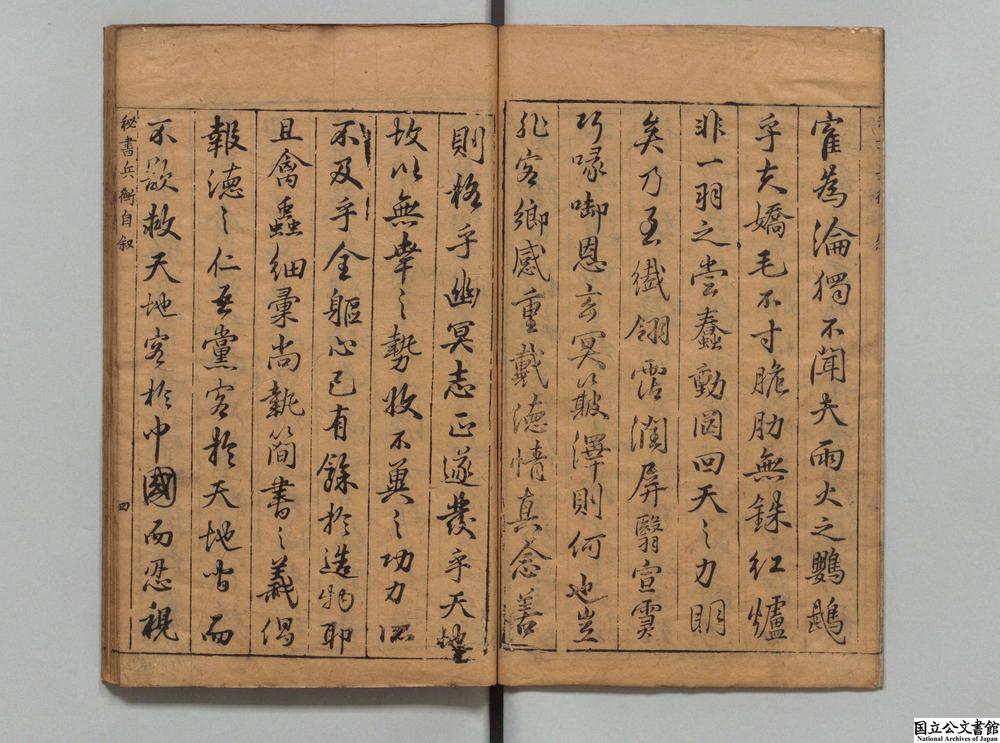 寉為淪獨不聞夫雨火之鸚鵡
乎夫嬌毛不寸脆肋無銖紅爐
非一羽之嘗蠢動図回天之力明
矣乃至纖翎霑潤屏翳宣雲
巧喙啣恩玄冥簸澤則何也豈
非客鄉感重戴德情真念善
則格乎幽冥志正遂發乎天地
故以無幸之勢收不冀之功力
不及乎全軀心已有餘於造物耶
且禽蟲細彙尚執簡書之義偈
報德之仁吾黨客於天地者而
不欲救天地客於中國而忍視
秘書兵衡自叙
四
国立公文書館
National Archives of Japan